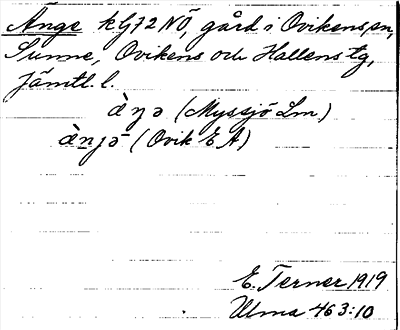 Ånge k G72 NÖ, gård i Ovikens sn,
Sunne, Ovikens och Hallens tg,
Jämtl. l.
àŋə (Myssjö Lm)
ànjə (Ovik E A)
E. Terner 1919
Ulma 463:10